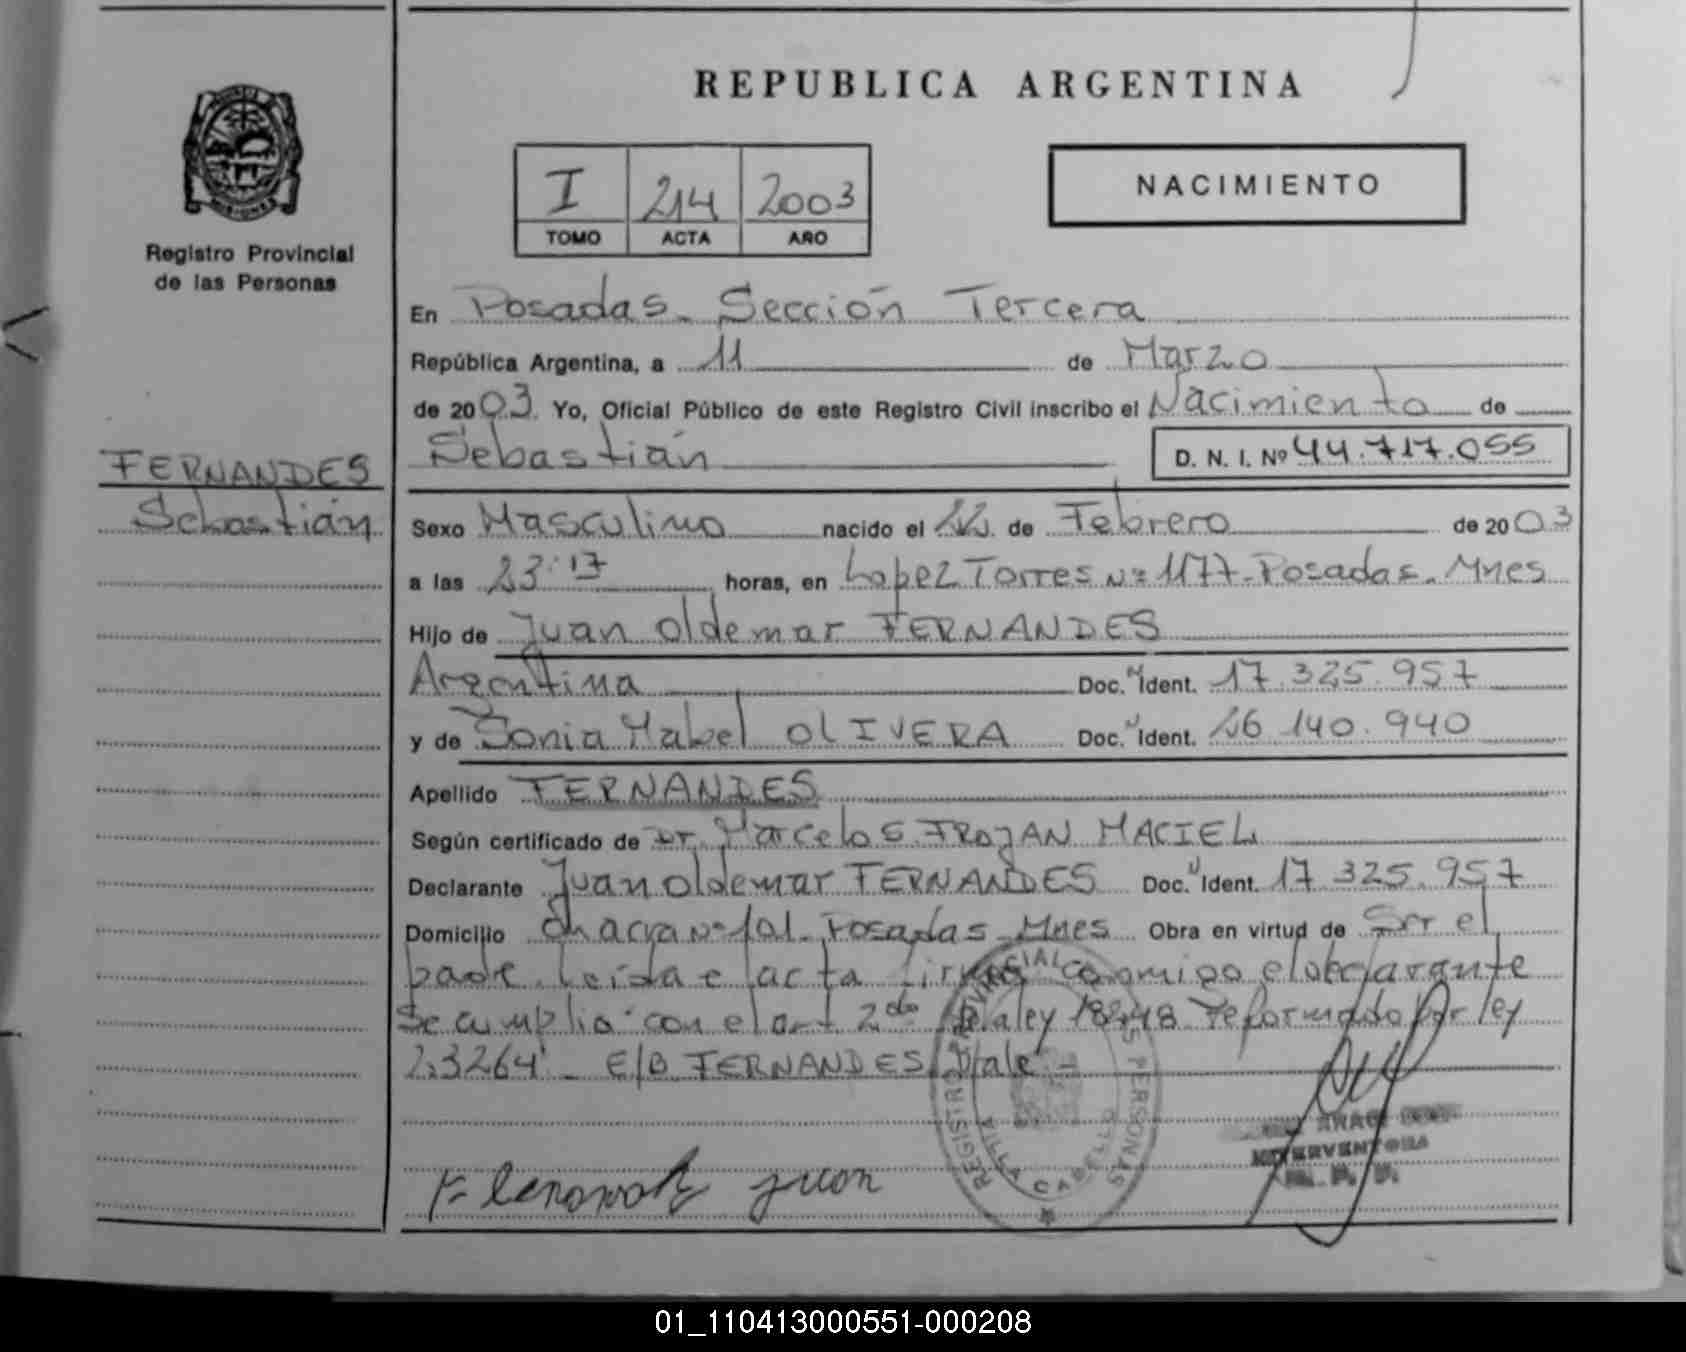 REPUBLICA ARGENTINA
I 214 2003
TOMO ACTA AÑO
NACIMIENTO
MISIONES
Registro Provincial
de las Personas
En Posadas - Sección Tercera
República Argentina, a 11 de Marzo
de 2003. Yo, Oficial Público de este Registro Civil inscribo el Nacimiento de
Sebastián D. N. I. Nº 44.717.055
FERNANDES
Sebastián
Sexo Masculino nacido el 22 de Febrero de 2003
a las 23:17 horas, en Lopez Torres Nº 1177 - Posadas - Mnes
Hijo de Juan Oldemar FERNANDES
Argentina Doc. N Ident. 17.325.957
y de Sonia Mabel OLIVERA Doc. N Ident. 26.140.940
Apellido FERNANDES
Según certificado de Dr. Marcelo S. TROJAN MACIEL
Declarante Juan Oldemar FERNANDES Doc. N Ident. 17.325.957
Domicilio Chacra Nº 101 - Posadas - Mnes Obra en virtud de Ser el
padre. Leída el acta firma conmigo el declarante
Se cumplio con el art 2do de la ley 18248 reformado por ley
23264 - E/B FERNANDES Vale -
REGISTRO PROVINCIAL DE LAS PERSONAS
VILLA CABELLO
INTERVENTORA
R. P. P.
juan
01_110413000551-000208